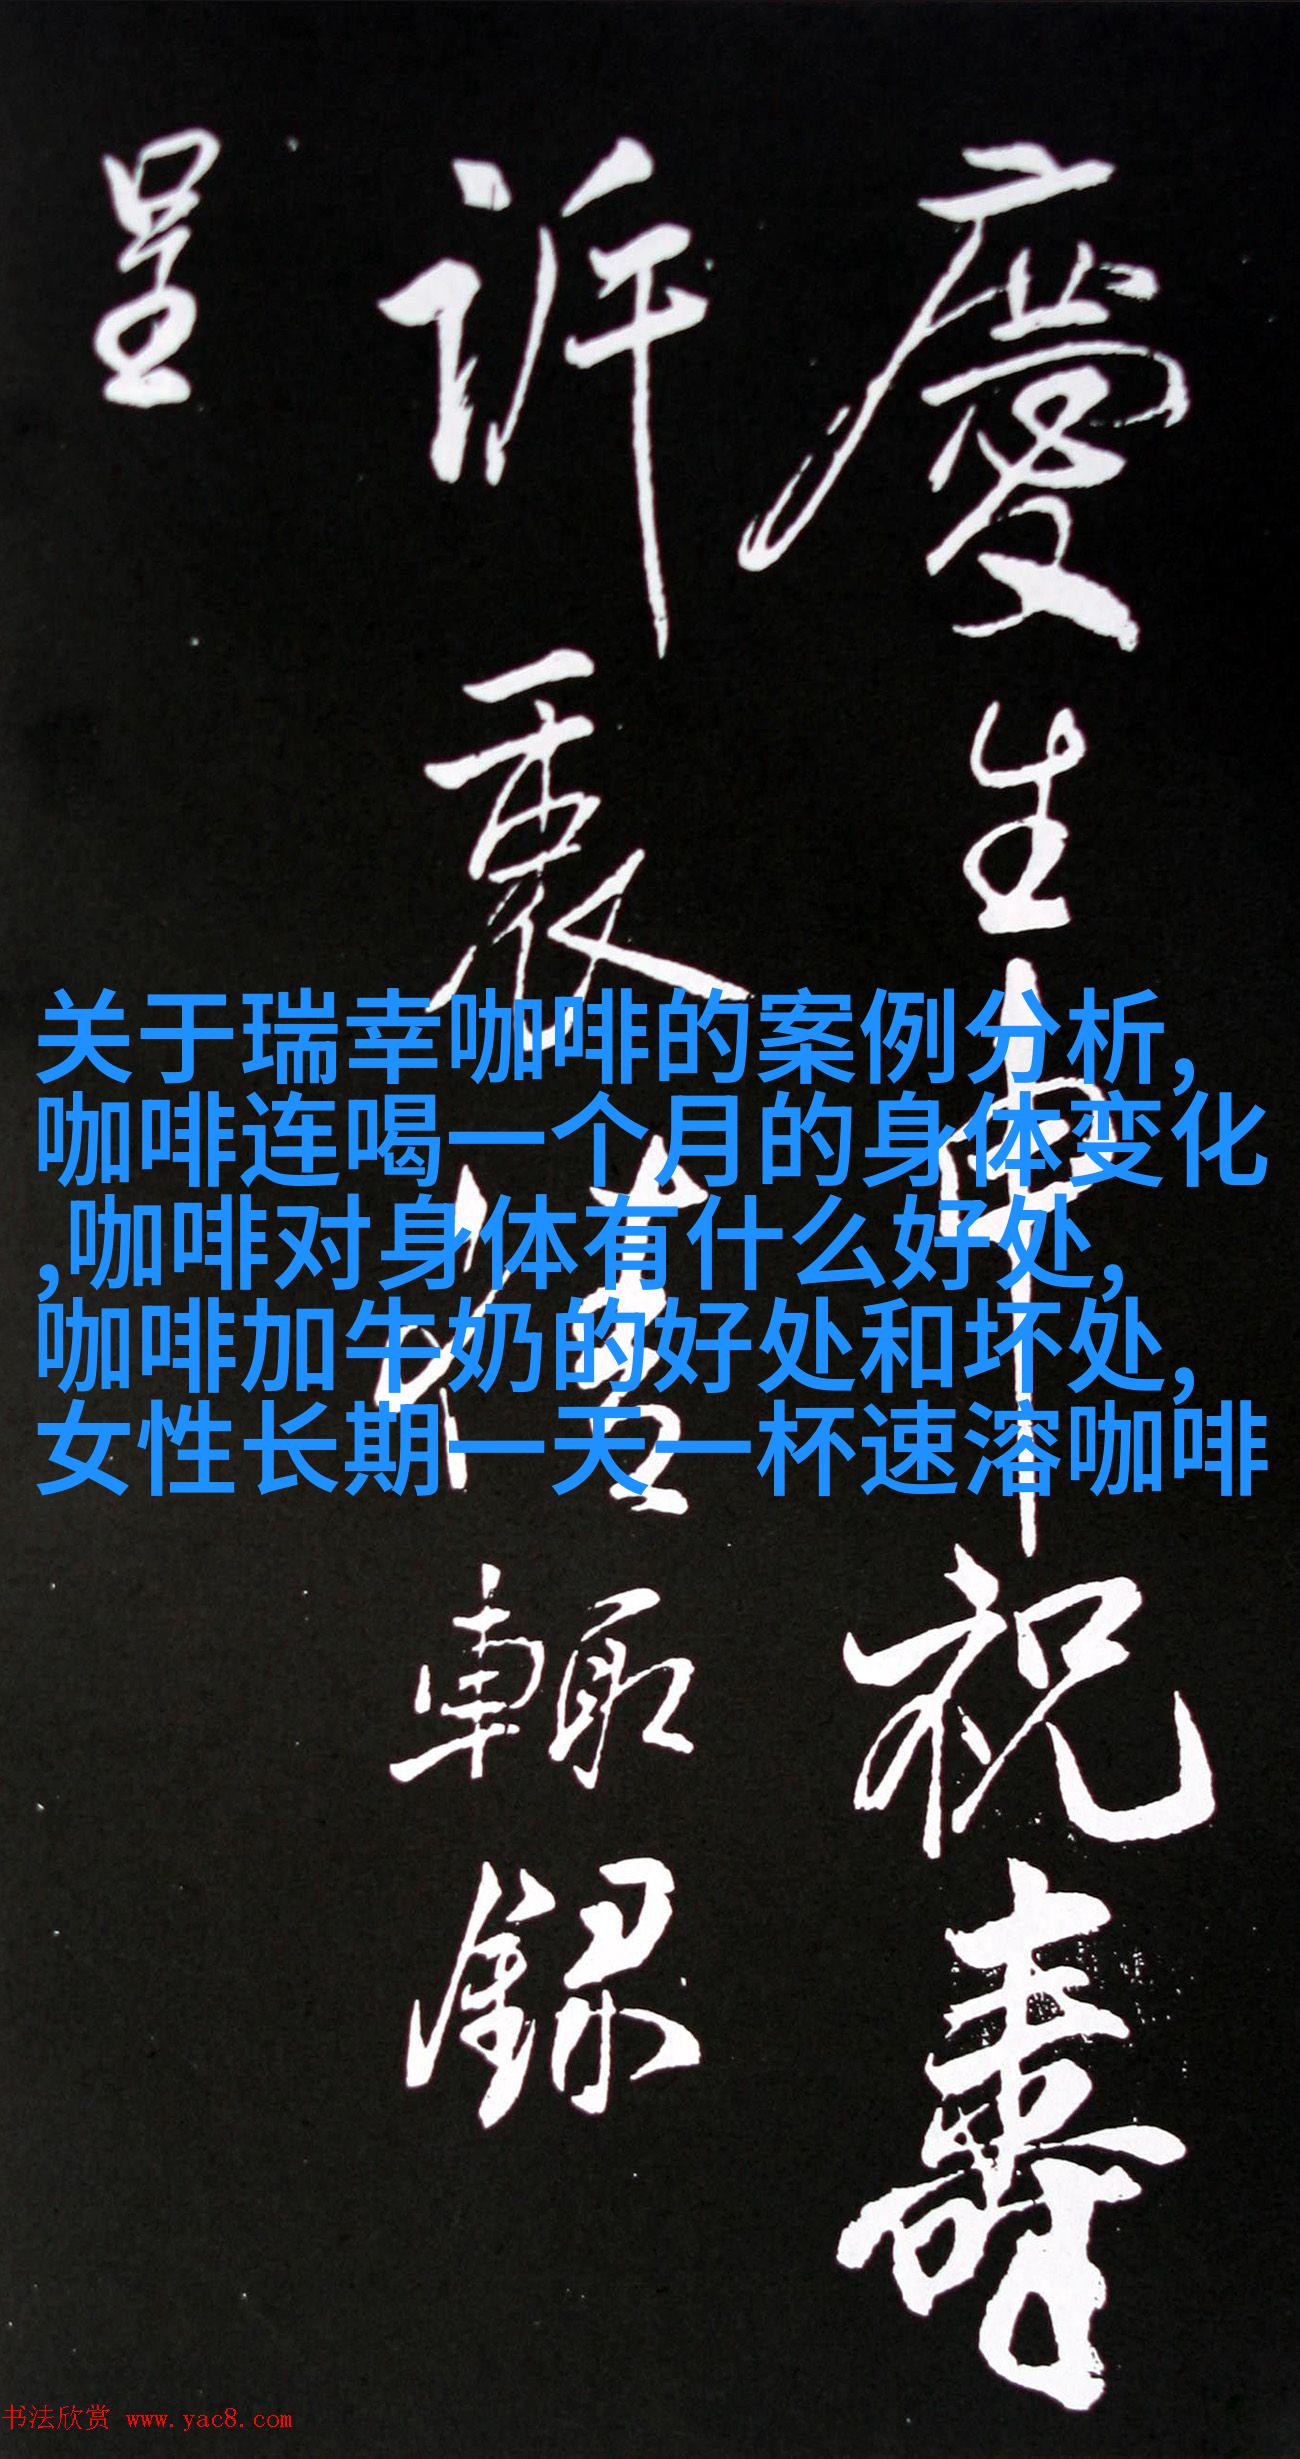 慶生申祝壽
訴衷情輒錄
呈
关于瑞幸咖啡的案例分析,
咖啡连喝一个月的身体变化
,咖啡对身体有什么好处,
咖啡加牛奶的好处和坏处,
女性长期一天一杯速溶咖啡
书法欣赏 www.yac8.com